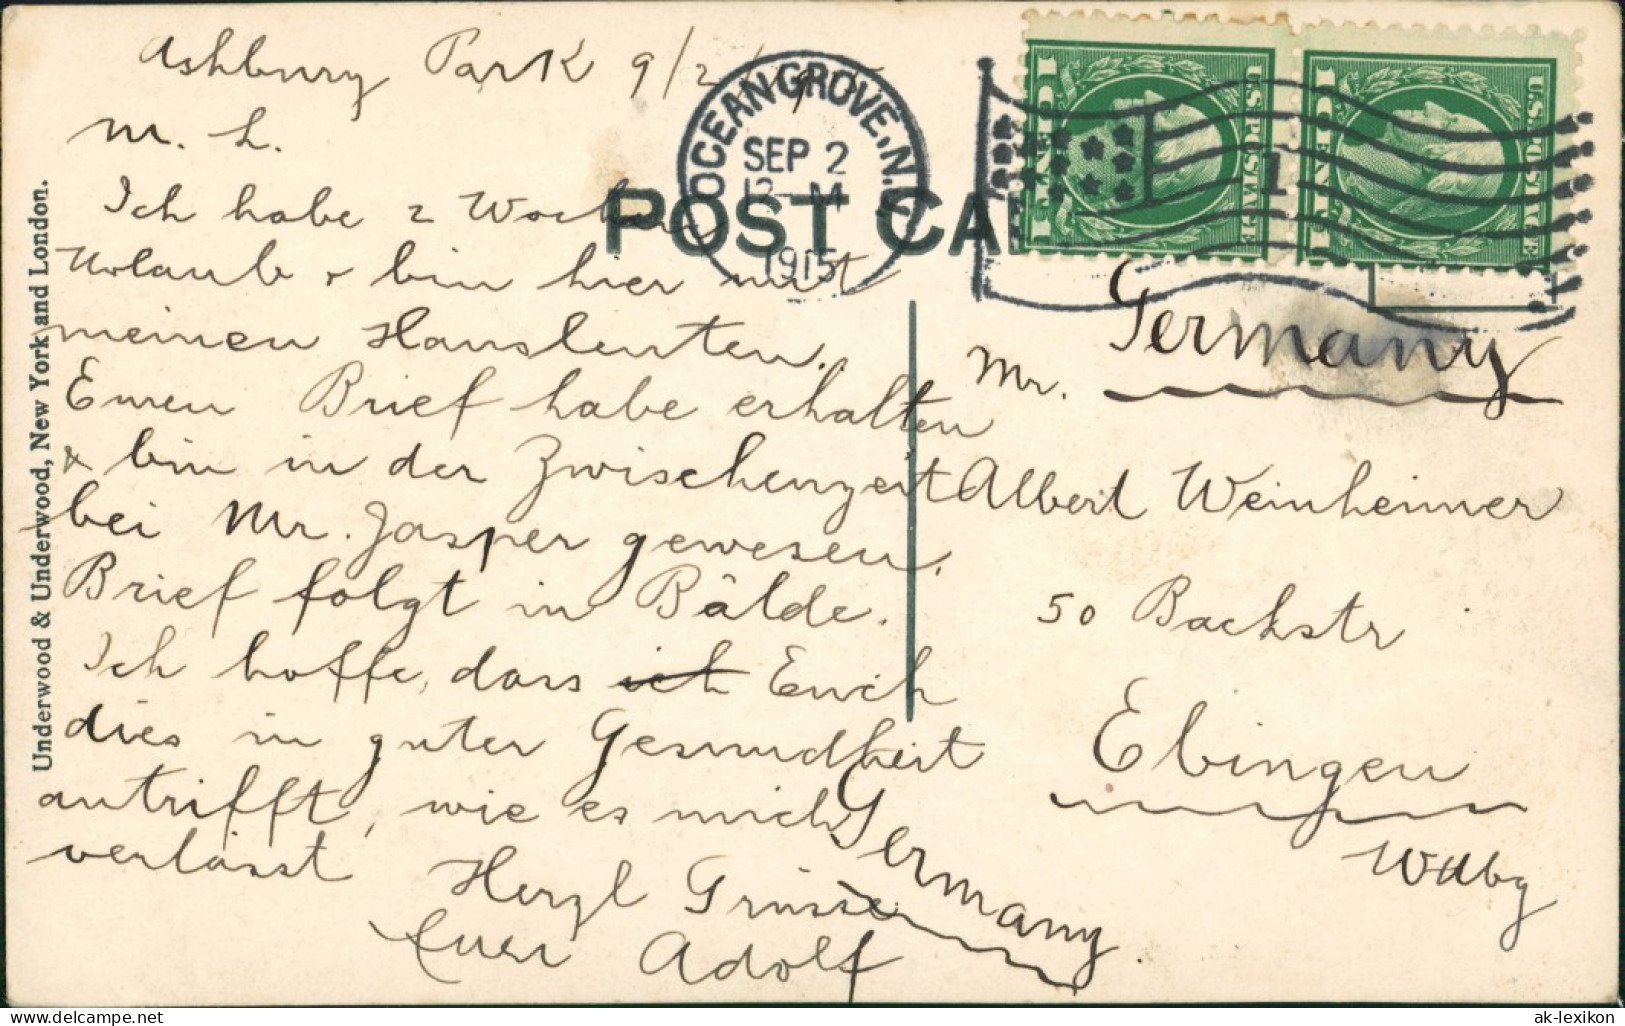 Ashbury Park 9/2 19
M. L.
Ich habe 2 Wochen
Urlaub & bin hier mit
meinen Hausleuten.
Euren Brief habe erhalten
& bin in der Zwischenzeit
bei Mr. Jasper gewesen.
Brief folgt in Bälde.
Ich hoffe, dass ich Euch
dies in guter Gesundheit
antrifft, wie es mich
verlässt
Herzl Grüsse
Euer Adolf
Germany
OCEAN GROVE, N.J.
SEP 2
12-M
1915
POST CA
1
U.S. POSTAGE
1 CENT 1
U.S. POSTAGE
1 CENT 1
Germany
Mr.
Albert Weinheimer
50 Backstr
Ebingen
Wttbg
Underwood & Underwood, New York and London.
ak-ansichtskarten.de
ak-lexikon